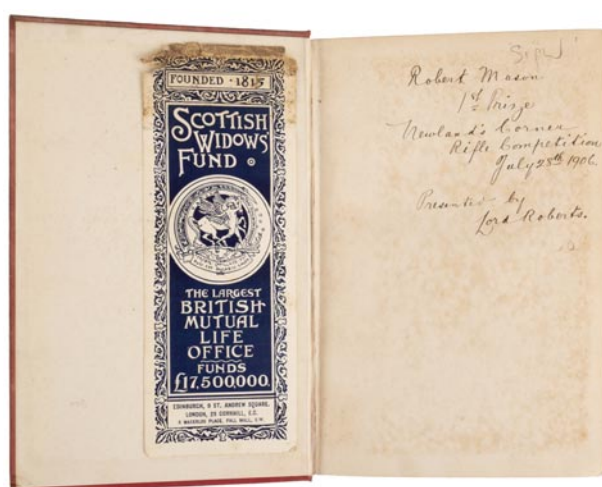 FOUNDED · 1815
SCOTTISH
WIDOWS'
FUND
THE LARGEST
BRITISH
MUTUAL
LIFE
OFFICE
FUNDS
£17,500,000.
EDINBURGH, 9 ST. ANDREW SQUARE.
LONDON, 28 CORNHILL, E.C.
5 WATERLOO PLACE, PALL MALL, S.W.
Robert Mason
1st Prize
Newland's Corner
Rifle Competition
July 28th 1906.
Presented by
Lord Roberts.